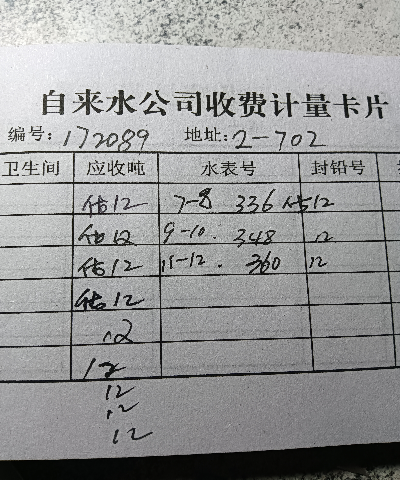 自来水公司收费计量卡片
编号: 172089 地址: 2-702
卫生间 应收吨 水表号 封铅号
估12 7-8 336 估12
估12 9-10. 348 12
估12 11-12. 360 12
估12
12
12
12
12
12